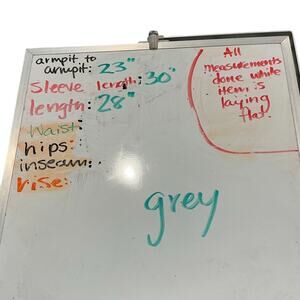 armpit to
armpit: 23"
Sleeve length: 30"
length: 28"
Waist:
hips:
inseam:
rise:
All
measurements
done while
item is
laying
flat.
grey